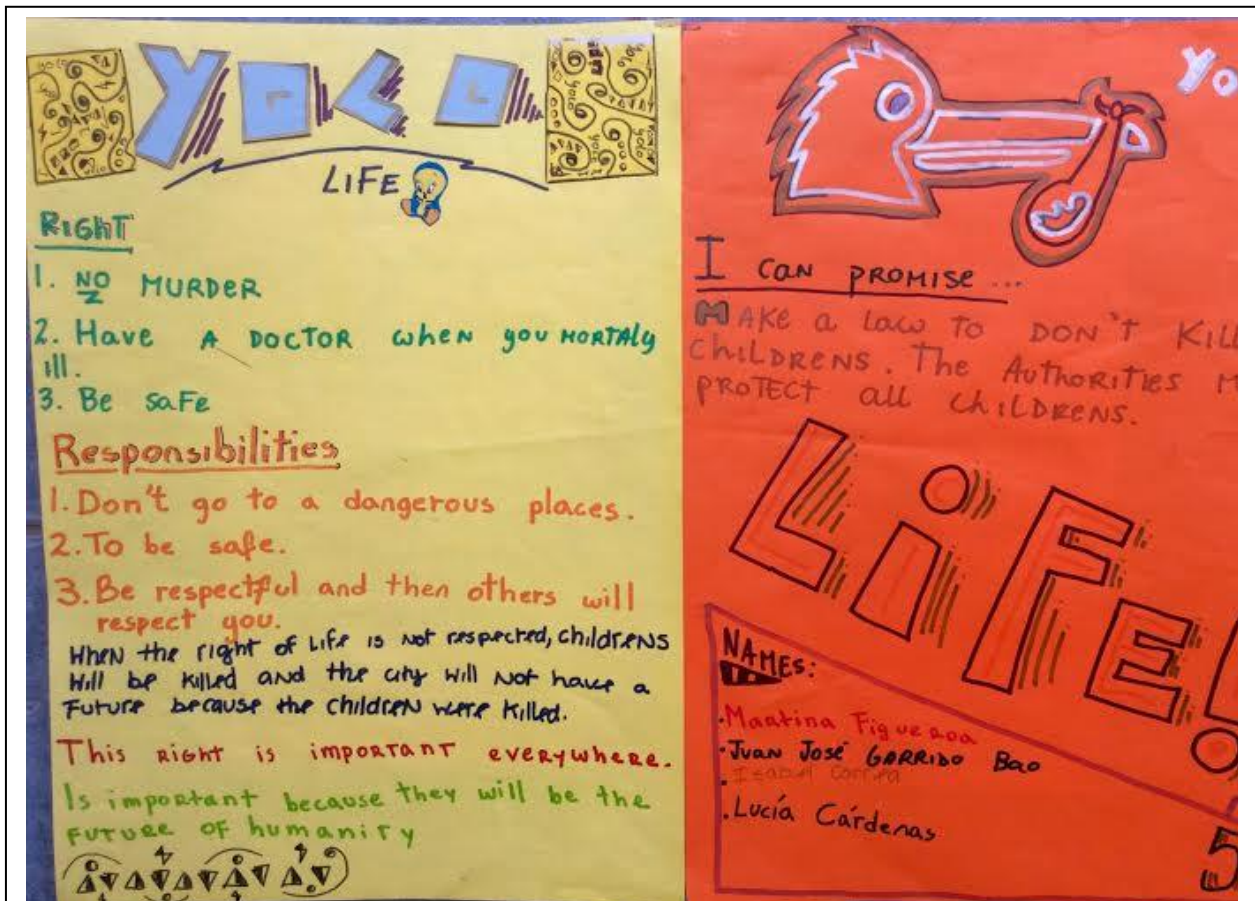 YOLO
LIFE
RIGHT
1. NO MURDER
2. Have A DOCTOR when you MORTALy
ill.
3. Be saFe
Responsibilities
1. Don't go to a dangerous places.
2. To be safe.
3. Be respectful and then others will
respect you.
WHEN the right of Life is not respected, childrens
will be killed and the city will not have a
Future because the children were killed.
This RIGHT is important everywhere.
Is important because they will be the
Future of humanity
Yo
I can PROMISE...
MAKE a law to DON'T KILL
CHILDRENS. The AUTHORITIES M
PROTECT all CHILDRENS.
LiFE!
NAMES:
.Martina Figueroa
.Juan José GARRIDO Bao
.Isabel Correa
.Lucía Cárdenas
5